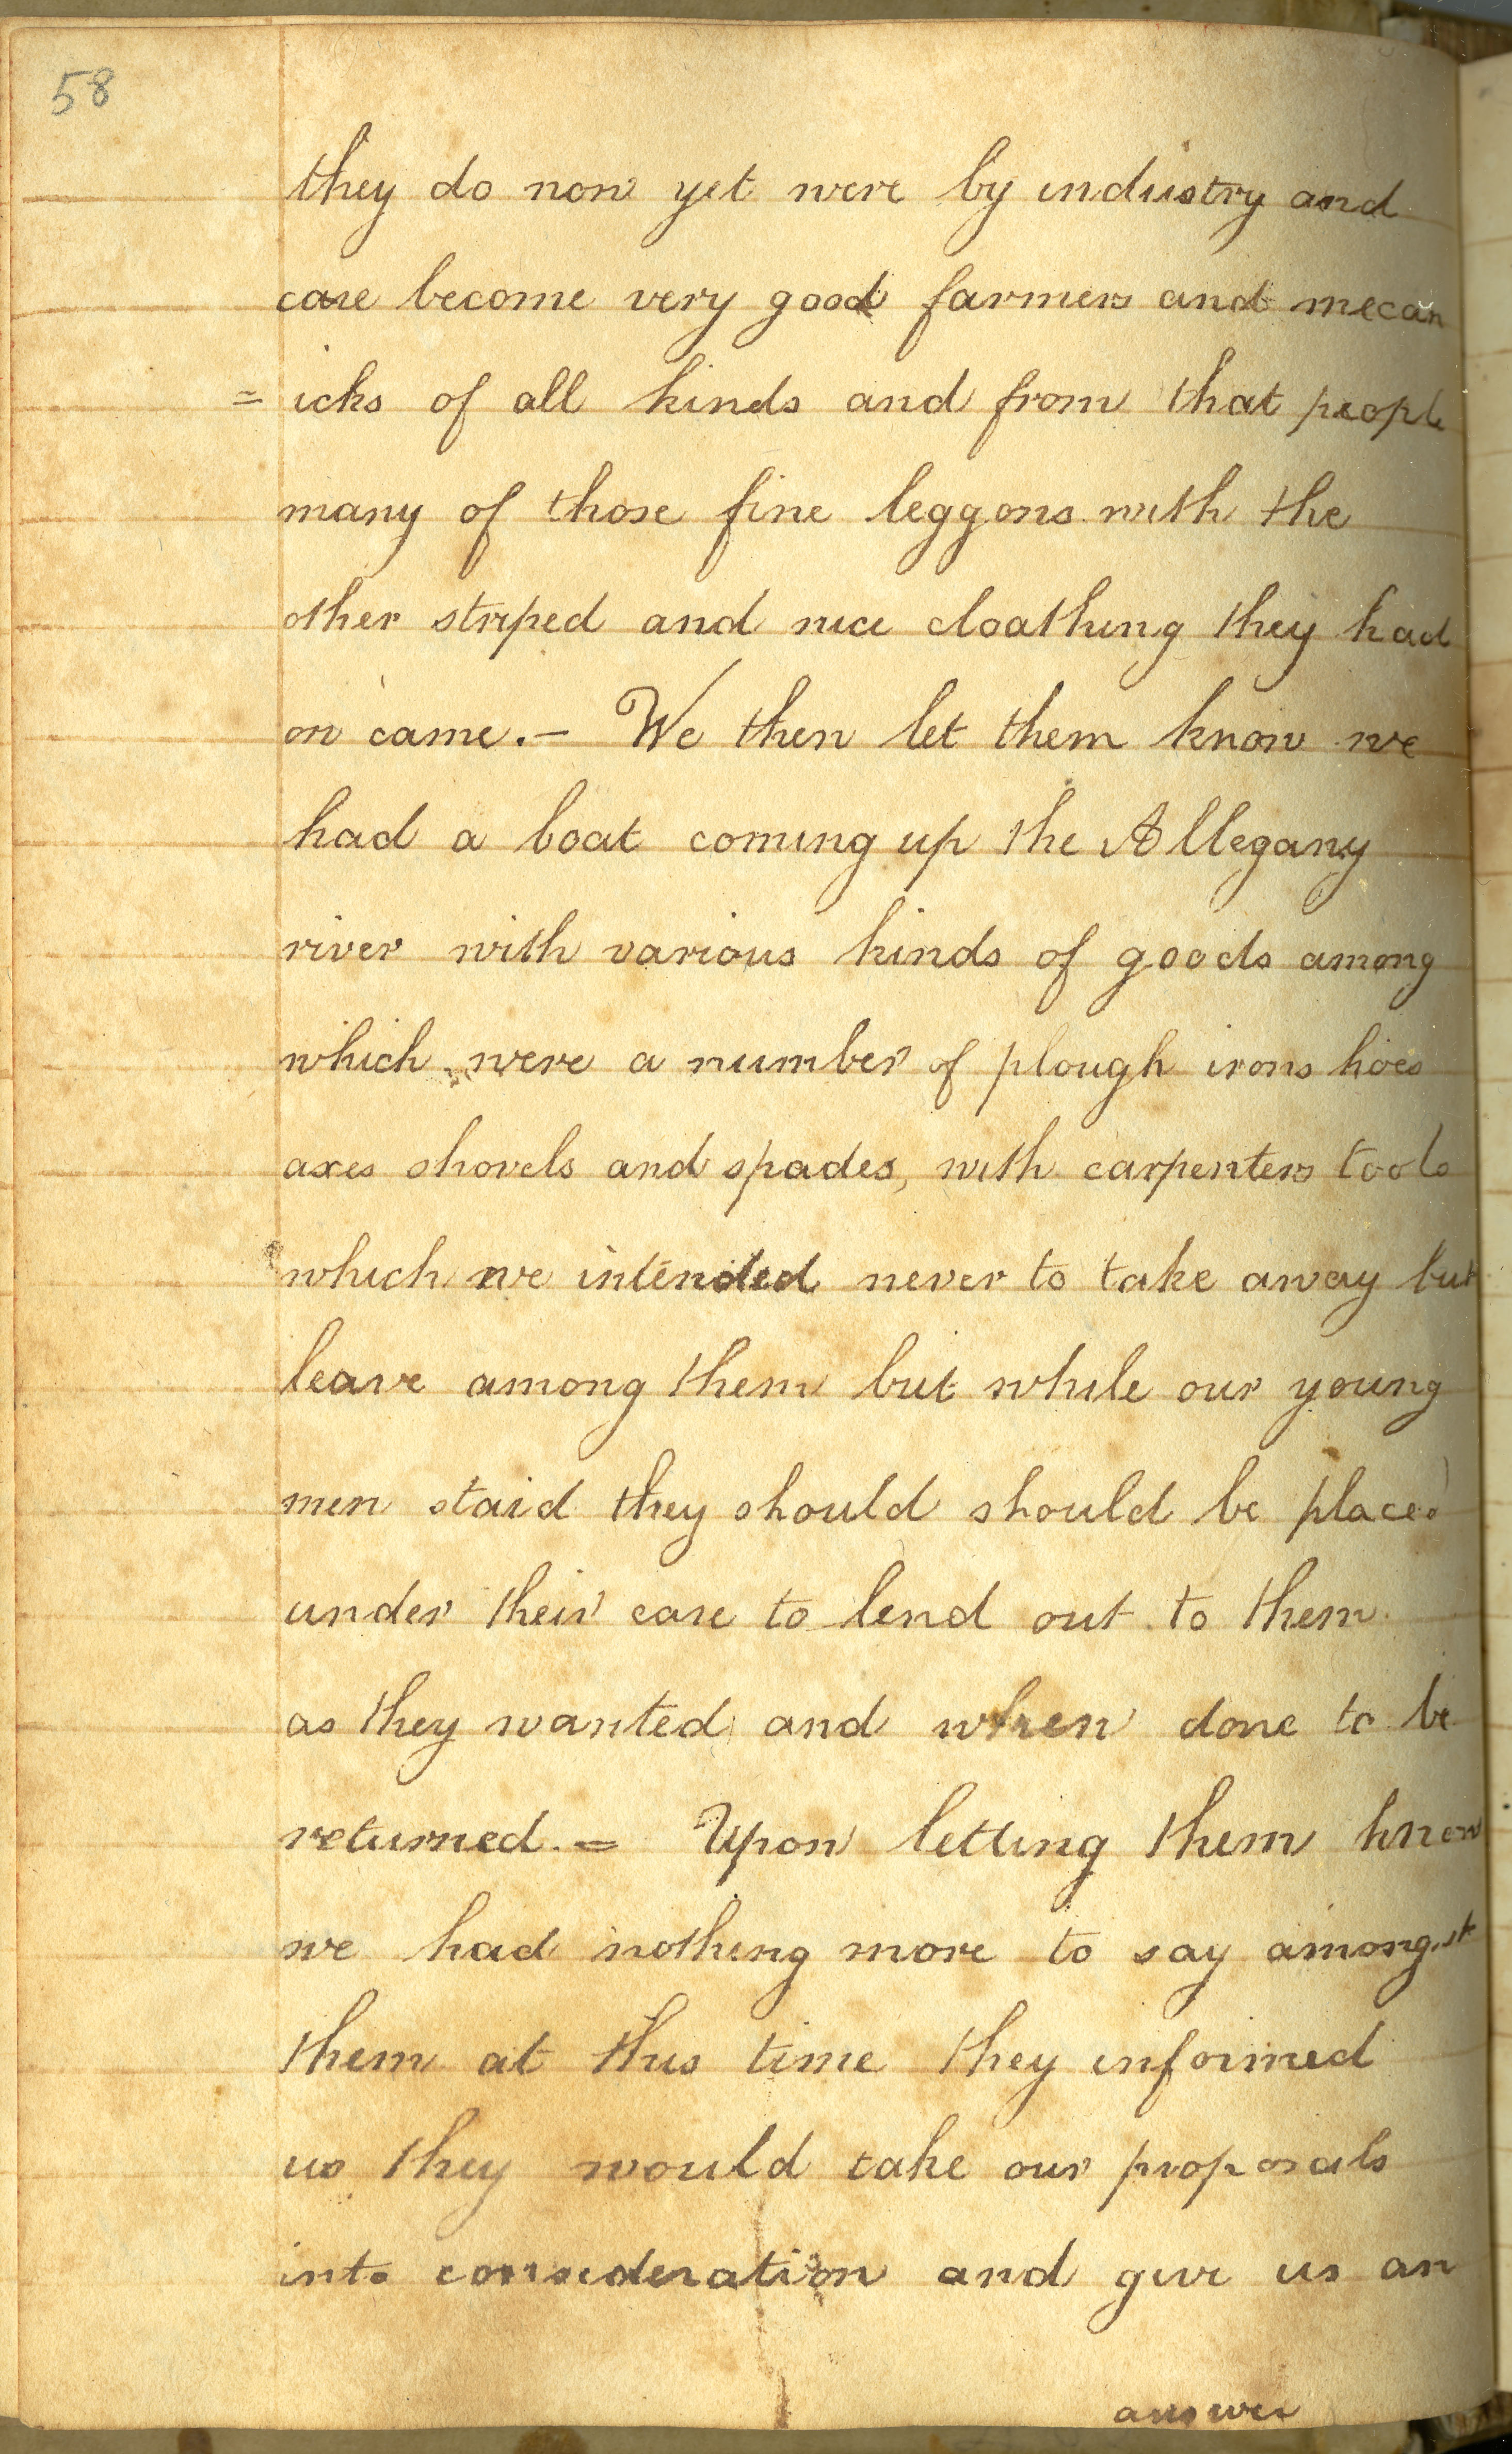 58
they do now yet were by industry and
care become very good farmers and mecan
= icks of all kinds and from that people
many of those fine leggons with the
other striped and nice cloathing they had
on came. – We then let them know we
had a boat coming up the Allegany
river with various kinds of goods among
which were a number of plough irons hoes
axes shovels and spades, with carpenters tools
which we intended never to take away but
leave among them but while our young
men staid they should should be placed
under their care to lend out to them
as they wanted and when done to be
returned. = Upon letting them know
we had nothing more to say amongst
them at this time they informed
us they would take our proposals
into consideration and give us an
answer